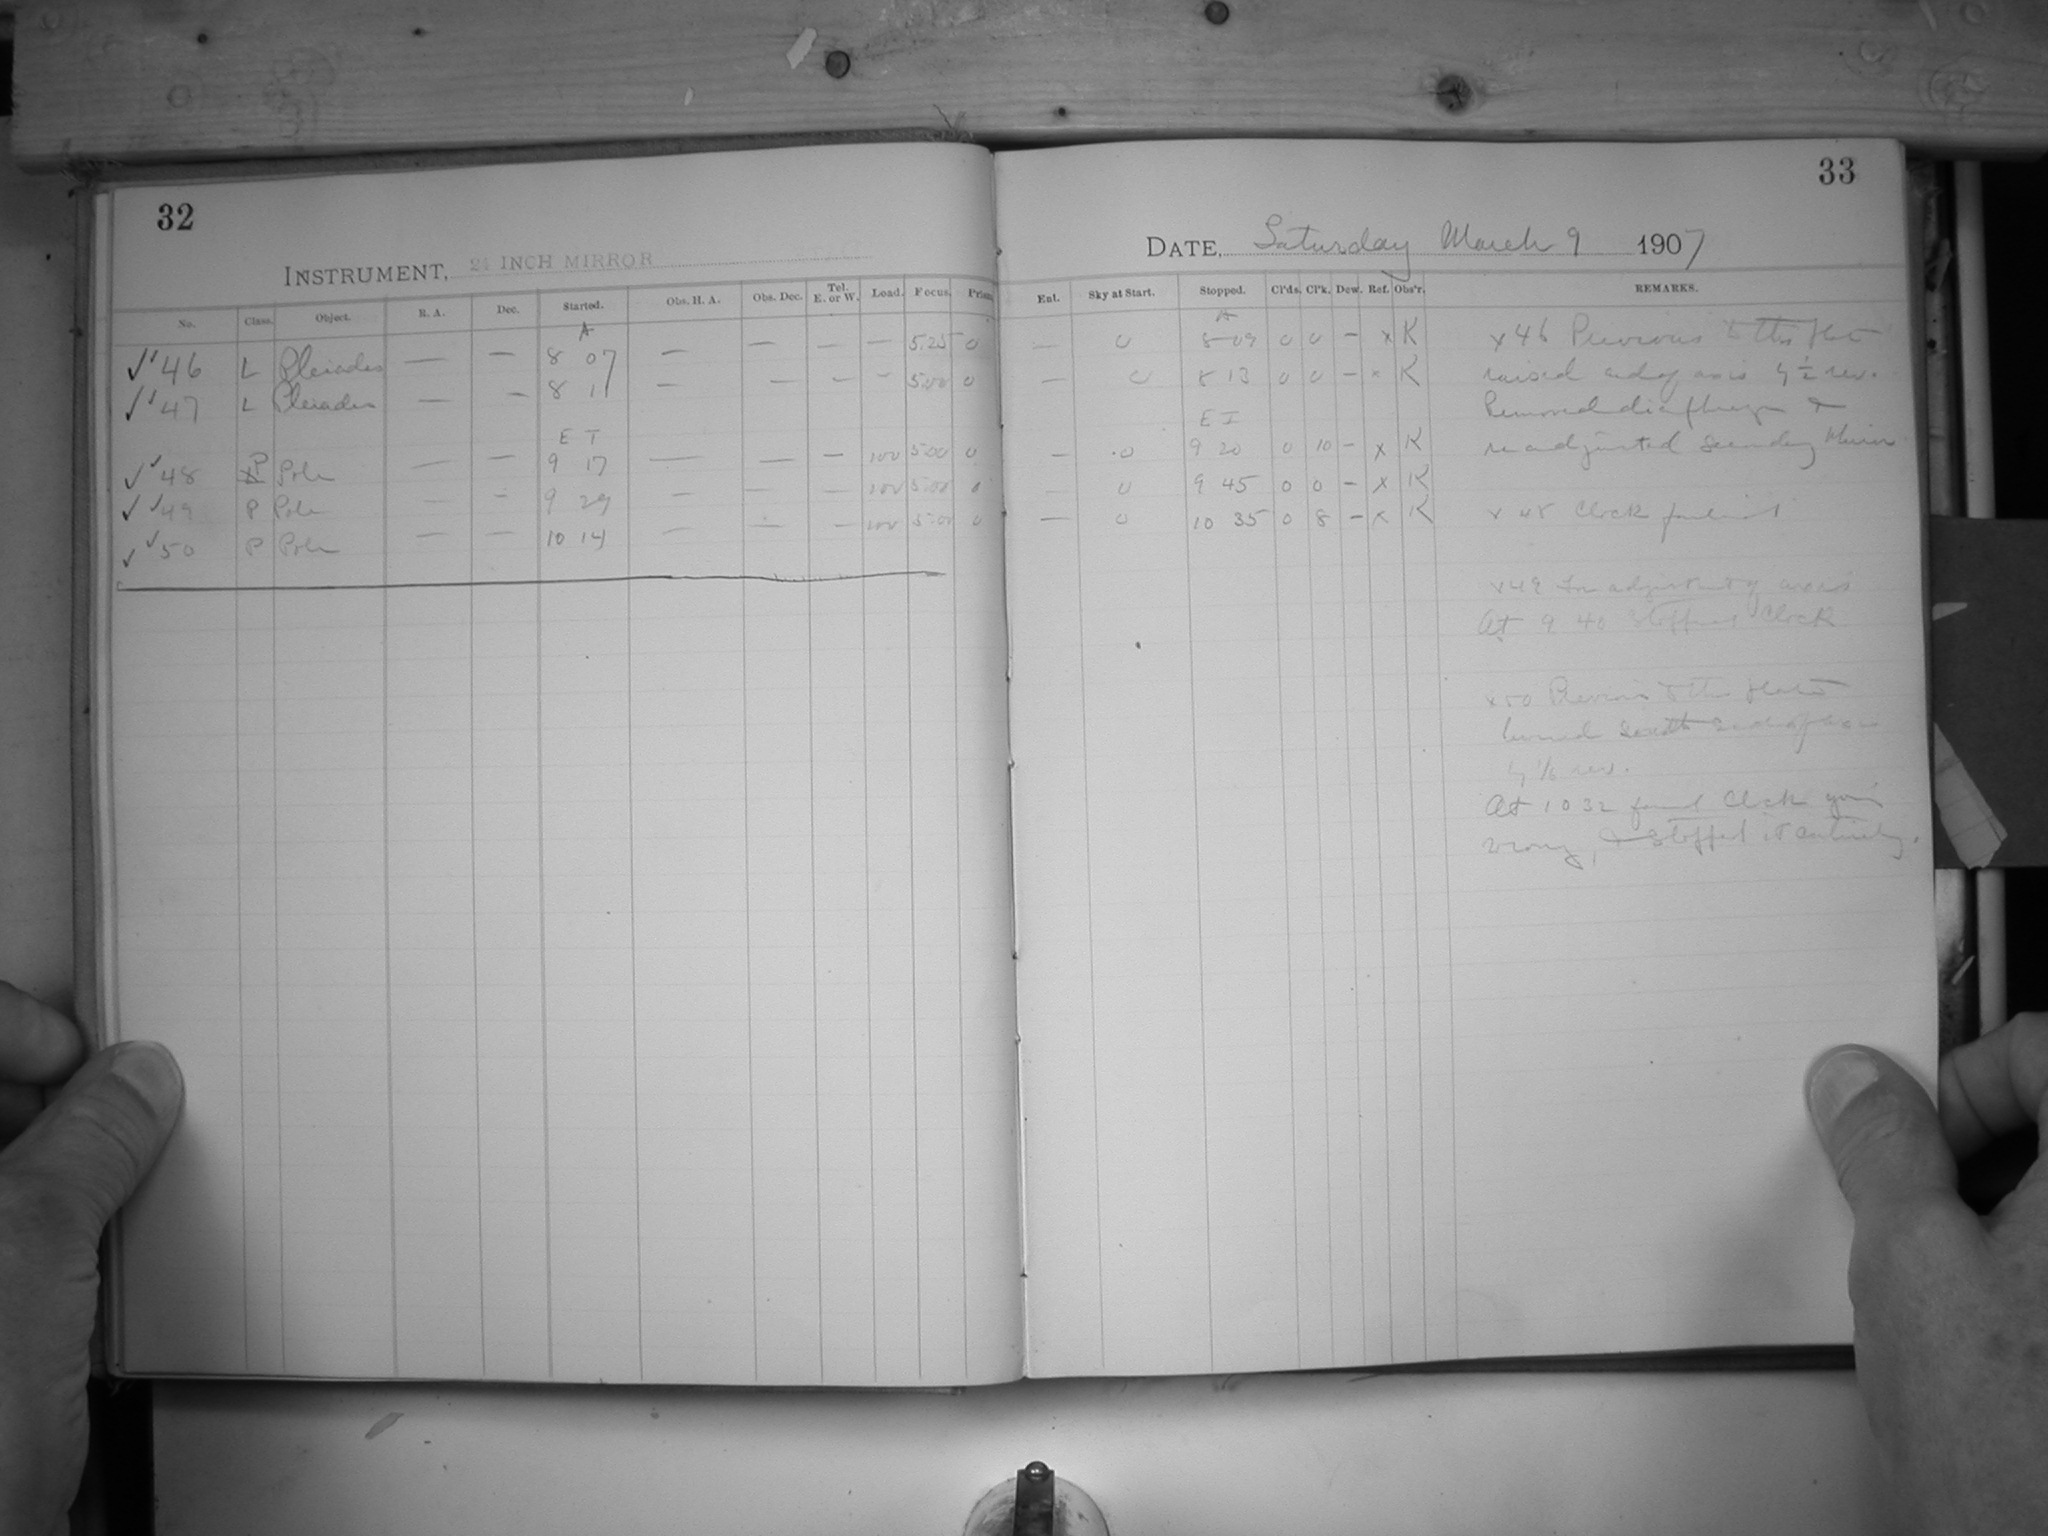 32
INSTRUMENT, 24 INCH MIRROR
No. Class. Object. R. A. Dec. Started. Obs. H. A. Obs. Dec. Tel. E. or W. Load. Focus. Prism
A
46 L Pleiades — — 8 07 — — — — 5.25 0
47 L Pleiades — — 8 11 — — — - 5.00 0
E T
48 P Pole — — 9 17 — — — 100 5.00 0
49 P Pole — — 9 29 — — — 100 5.00 0
50 P Pole — — 10 14 — — — 100 5.00 0
33
DATE, Saturday March 9 1907
Ent. Sky at Start. Stopped. Cl'ds. Cl'k. Dew. Ref. Obs'r. REMARKS.
A
— 0 8 09 0 0 — x K
— 0 8 13 0 0 — x K
— 0 9 20 0 10 — x K
— 0 9 45 0 0 — x K
— 0 10 35 0 8 — x K
x 46 Previous to this plate
raised end of axis by ½ rev.
Removed diaphragm &
readjusted Secondary Mirror
x 48 Clock
x 49 For adjustment of axis
At 9 40 Stopped Clock
x 50 Previous to this plate
South end of axis
by 1/6 rev.
At 10 32 found Clock going
wrong, & stopped it entirely.